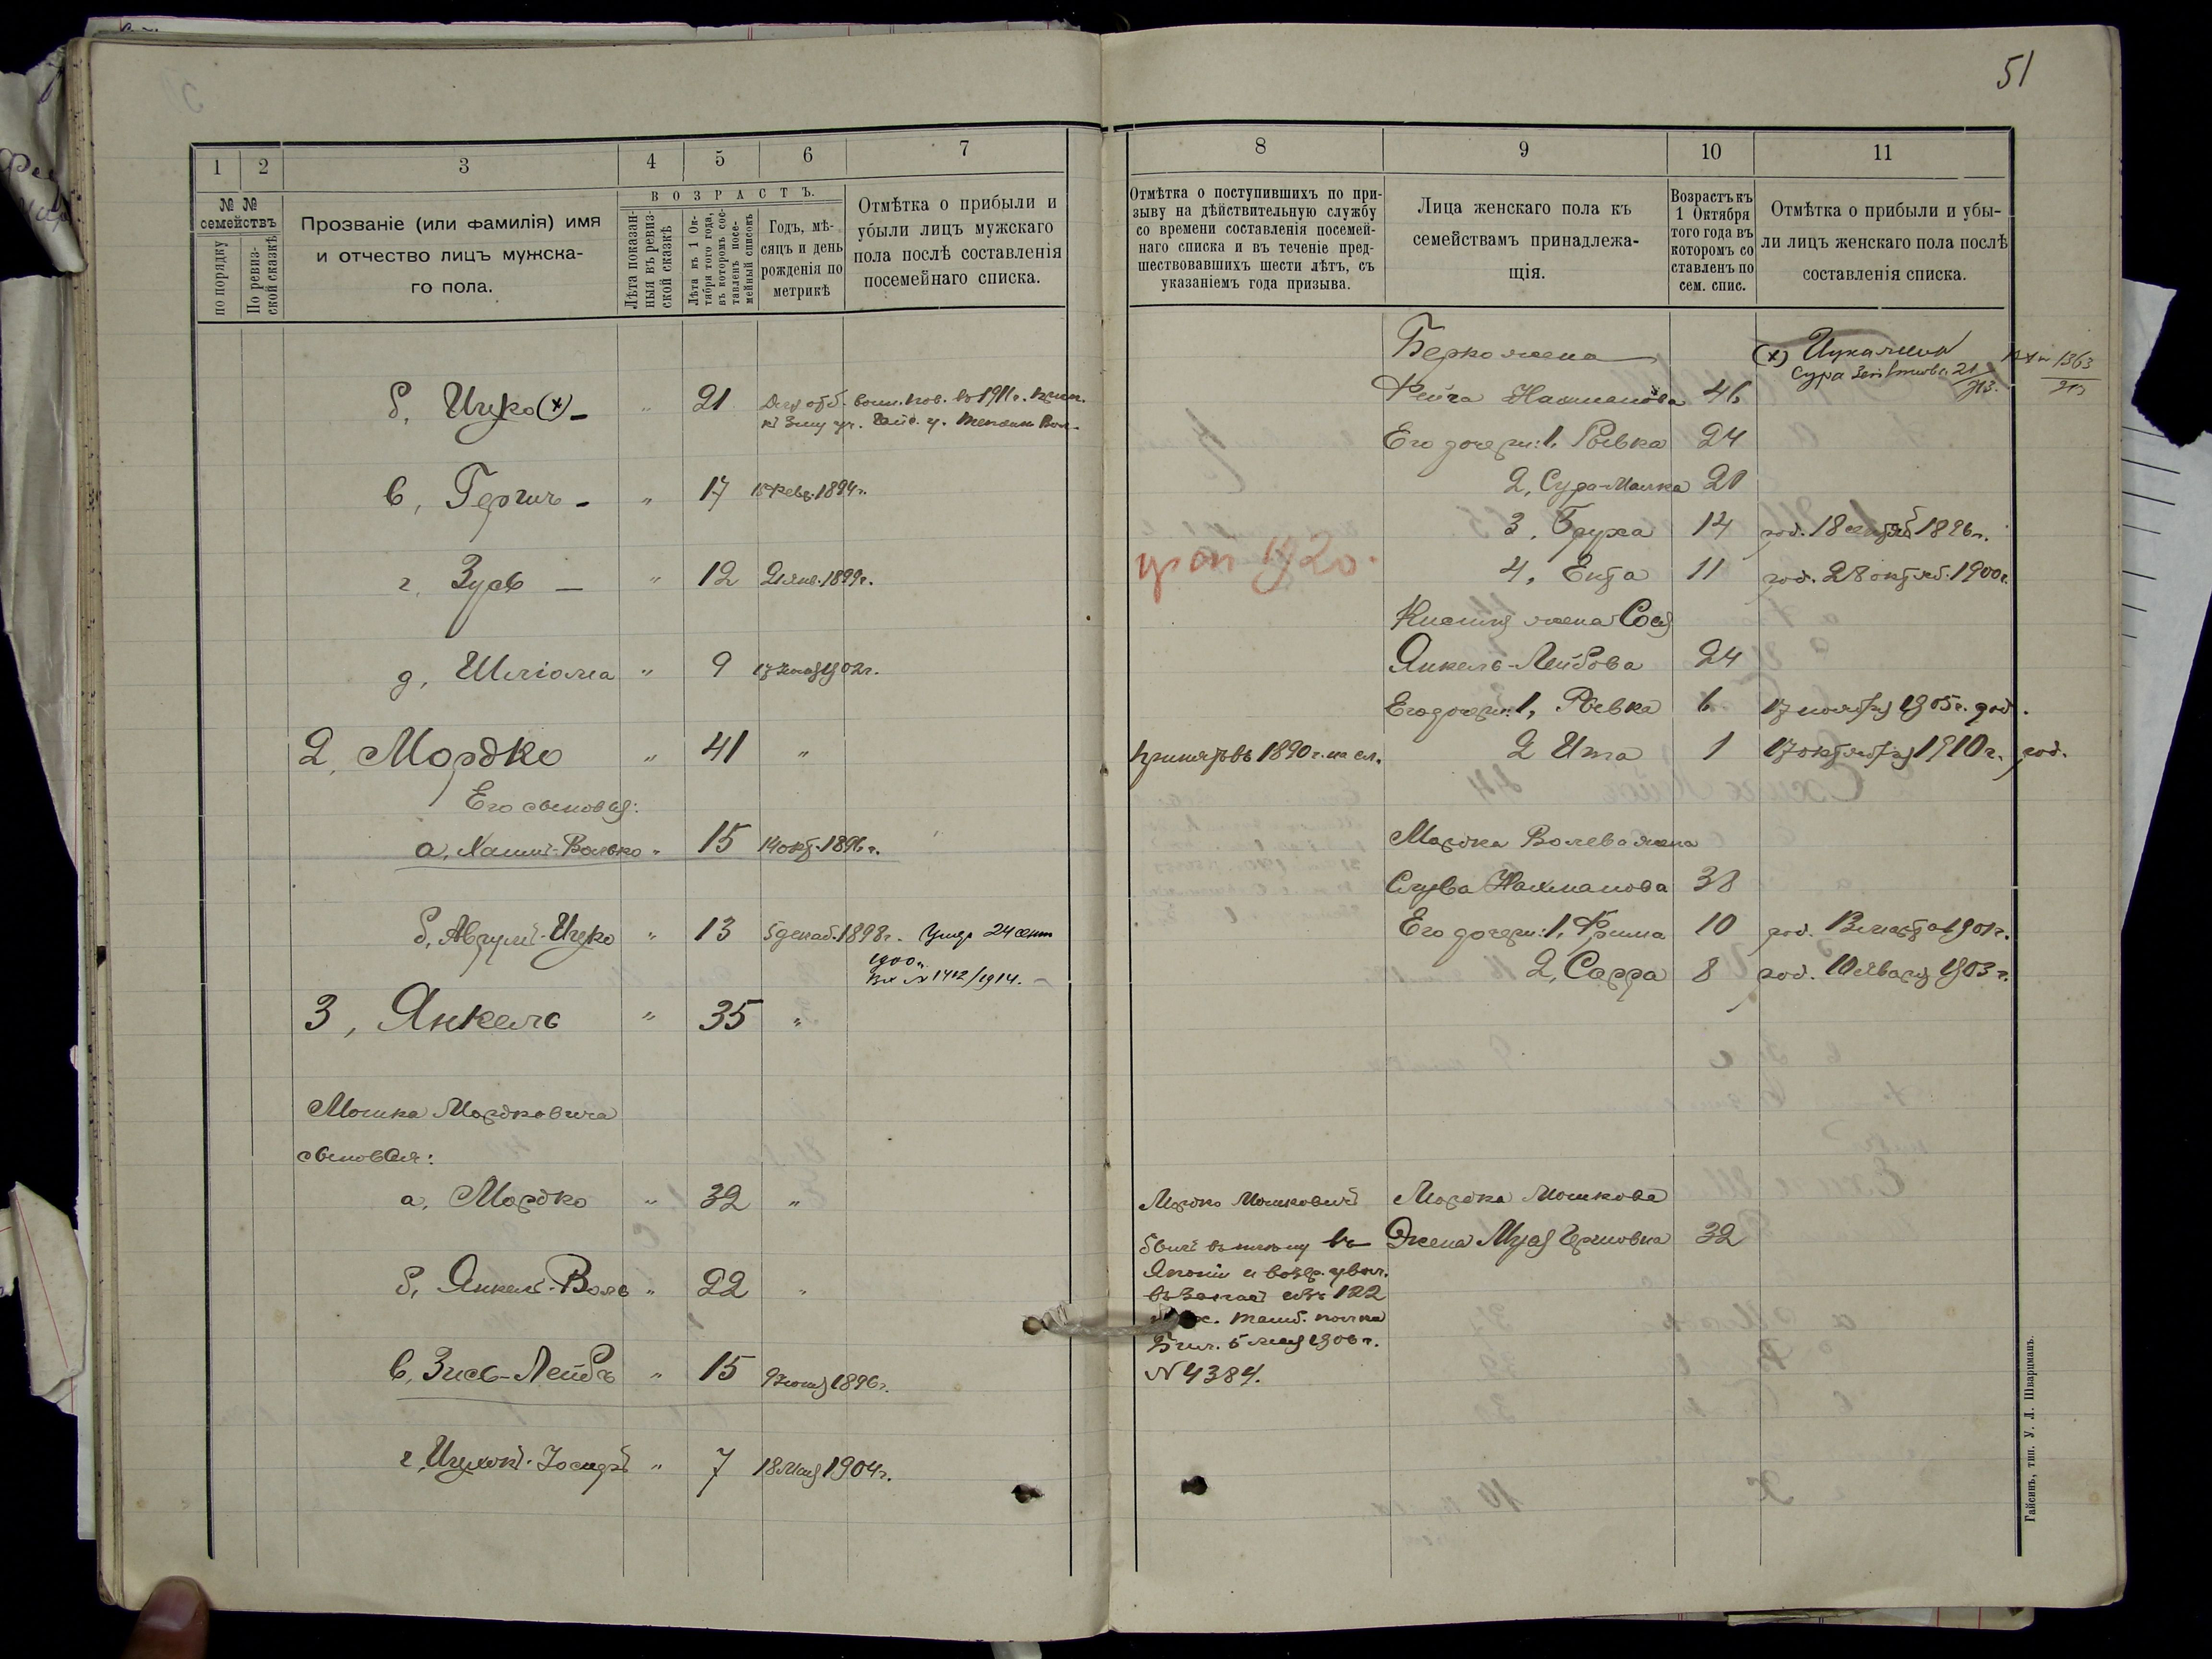 51
1
2
3
4
5
6
7
№ №
семействъ
по порядку
По ревиз-
ской сказкѣ
Прозваніе (или фамилія) имя
и отчество лицъ мужска-
го пола.
ВОЗРАСТЪ.
Лѣта показан-
ныя въ ревиз-
ской сказкѣ
Лѣта къ 1 Ок-
тября того года,
въ которомъ сос-
тавленъ посе-
мейный списокъ
Годъ, мѣ-
сяцъ и день
рожденія по
метрикѣ
Отмѣтка о прибыли и
убыли лицъ мужскаго
пола послѣ составленія
посемейнаго списка.
б, Ицко (х) - " 21
воин. пов. въ 1911 г.
в, Гершъ - " 17 1894 г.
г, Зусь — " 12 21 янв. 1899 г.
д, Шліома " 9 1902 г.
2, Мордко " 41 "
Его сыновья:
а, Хаимъ-Волько " 15 14 окт. 1896 г.
б, Аврумъ-Ицко " 13 5 декаб. 1898 г. Умеръ 24 сент
1900 г.
Вх № 1412/1914.
3, Янкель " 35 "
Мошка Мордковича
сыновья:
а, Мордко " 32 "
б, Янкель-Воль " 22 "
в, Зись-Лейбъ " 15 1896 г.
г, Ицхокъ-Іосифъ " 7 18 мая 1904 г.
8
9
10
11
Отмѣтка о поступившихъ по при-
зыву на дѣйствительную службу
со времени составленія посемей-
наго списка и въ теченіе пред-
шествовавшихъ шести лѣтъ, съ
указаніемъ года призыва.
Лица женскаго пола къ
семействамъ принадлежа-
щія.
Возрастъ къ
1 Октября
того года въ
которомъ со
ставленъ по
сем. спис.
Отмѣтка о прибыли и убы-
ли лицъ женскаго пола послѣ
составленія списка.
Берко жена
(х)
Сура
1363
Фейга Нахманова 46
Его дочери: 1, Ривка 24
2, Сура-Малка 21
3, Бруха 14 род. 18 1896 г.
1920.
4, Ента 11 род. 28 октяб. 1900 г.
жена Сося
Янкель-Лейбова 24
Его дочери: 1, Ривка 6 17 ноября 1905 г. род.
Принятъ въ 1890 г. на сл. 2 Ита 1 17 октября 1910 г. род.
Мордка Волева жена
Слува Нахманова 38
Его дочери: 1, Фрима 10 род. 1901 г.
2, Сарра 8 род. 10 января 1903 г.
Мордко Мошковичъ
былъ въ плѣну въ
Японіи и возвр. увол.
въ запасъ изъ 122
пѣх. тамб. полка
Бил. 5 мая 1906 г.
N 4384.
Мордка Мошкова
Жена Муся Гершовна 32
Гайсинъ, тип. У. Л. Шварцманъ.